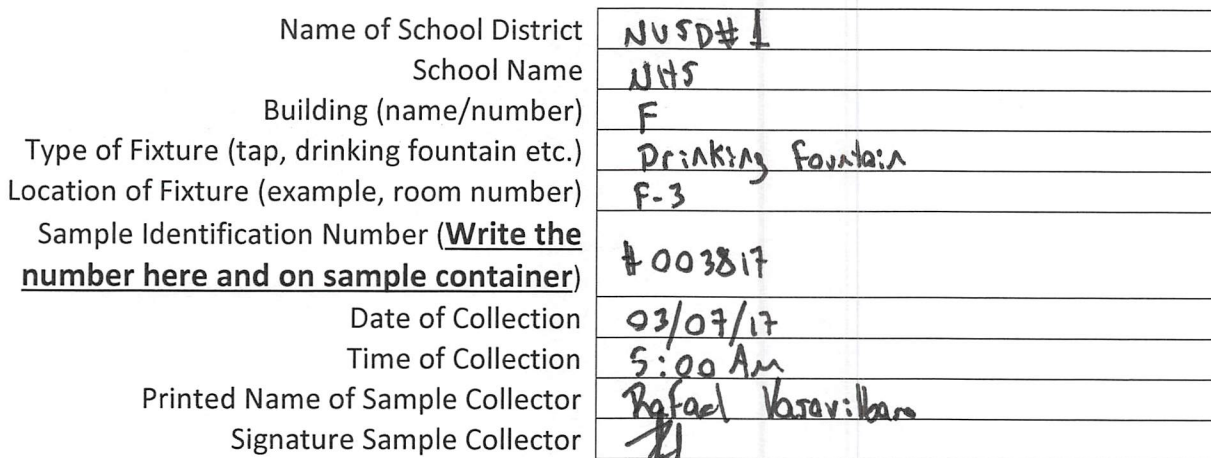 Name of School District NUSD#1
School Name NHS
Building (name/number) F
Type of Fixture (tap, drinking fountain etc.) Drinking Fountain
Location of Fixture (example, room number) F-3
Sample Identification Number (Write the
number here and on sample container) #003817
Date of Collection 03/07/17
Time of Collection 5:00 AM
Printed Name of Sample Collector Rafael
Signature Sample Collector